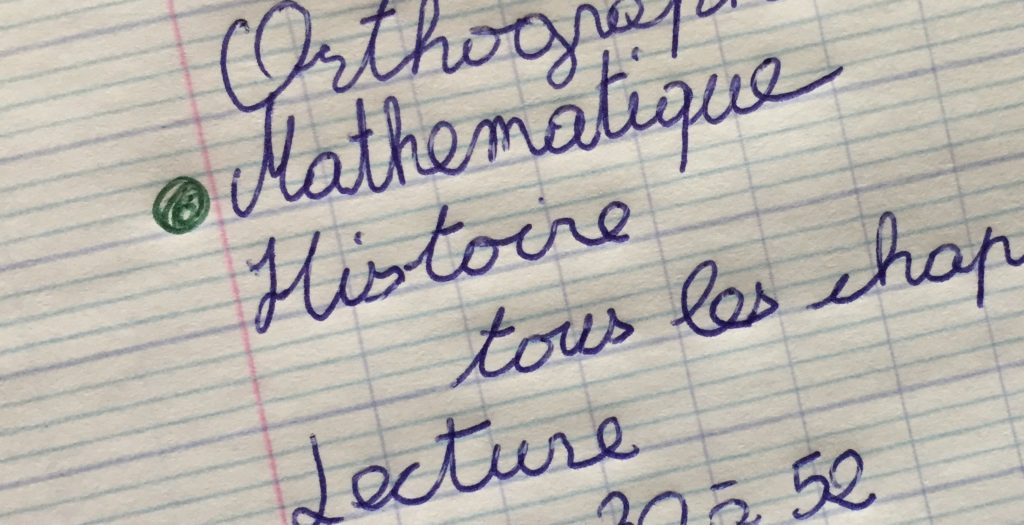 Orthograph
Mathematique
Histoire
tous les chap
Lecture
à 52